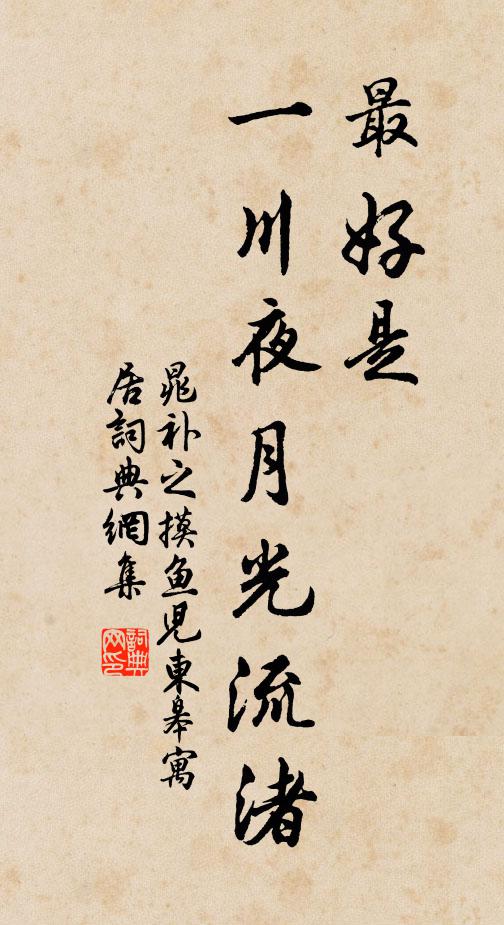 最好是
一川夜月光流渚
晁补之摸鱼儿東皋寓
居詞典網集
詞典网印